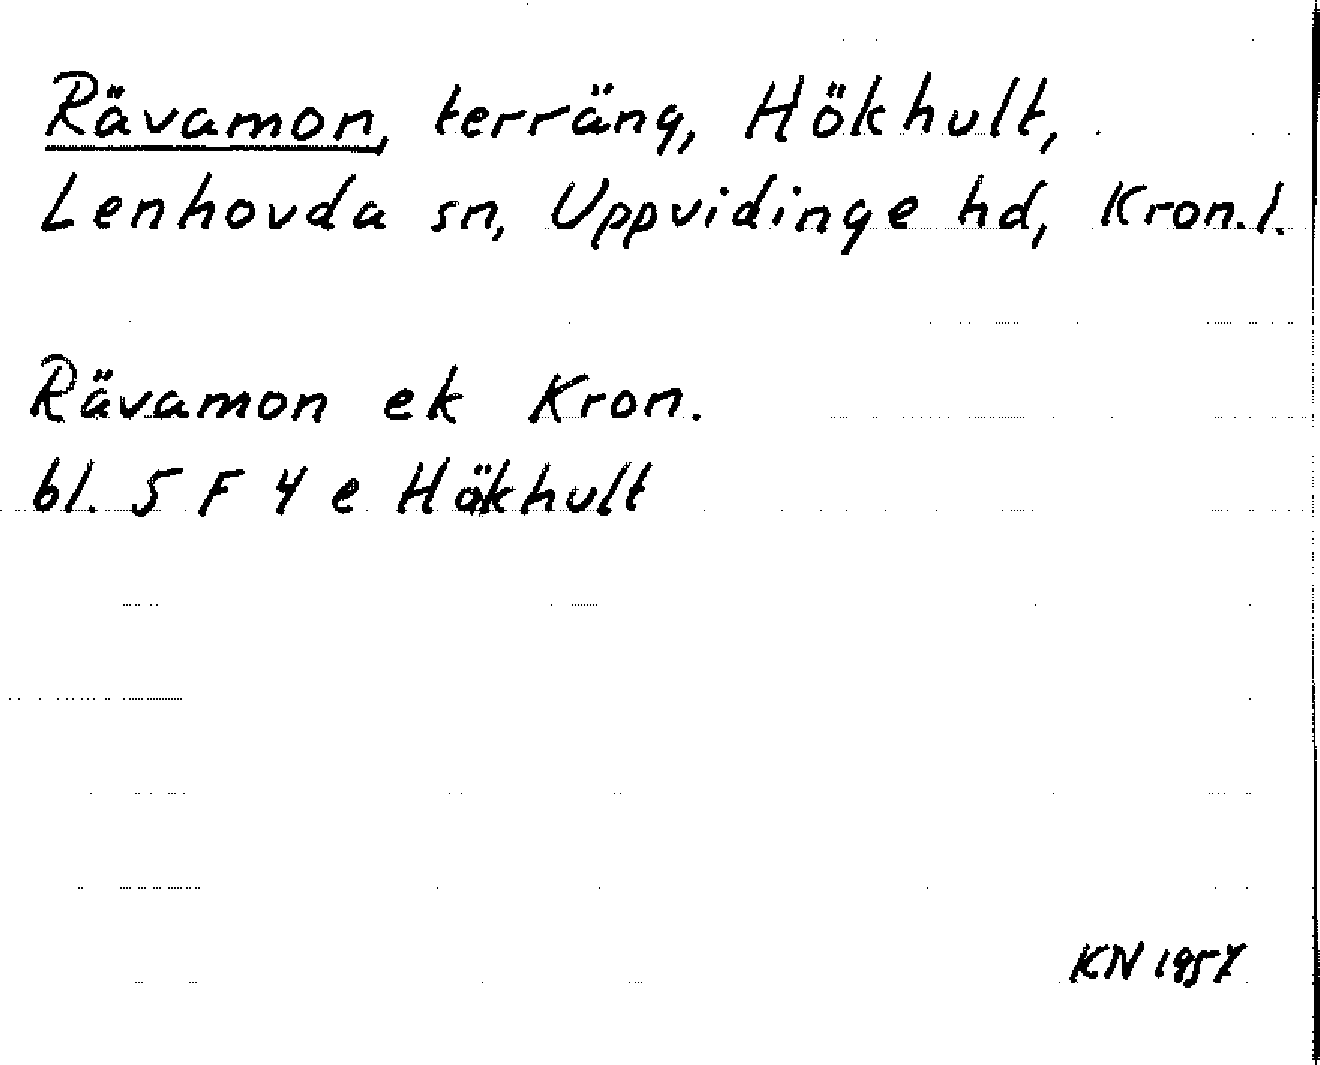 Rävamon, terräng, Hökhult,
Lenhovda sn, Uppvidinge hd, Kron.l.
Rävamon ek Kron.
bl. 5 F 4 e Hökhult
KN 1957